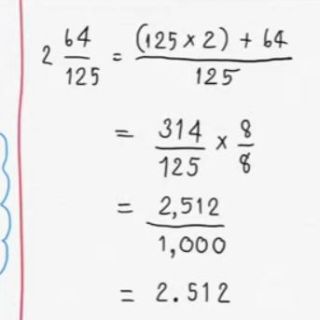 2 64/125 = (125 × 2) + 64 / 125
= 314/125 × 8/8
= 2,512/1,000
= 2.512